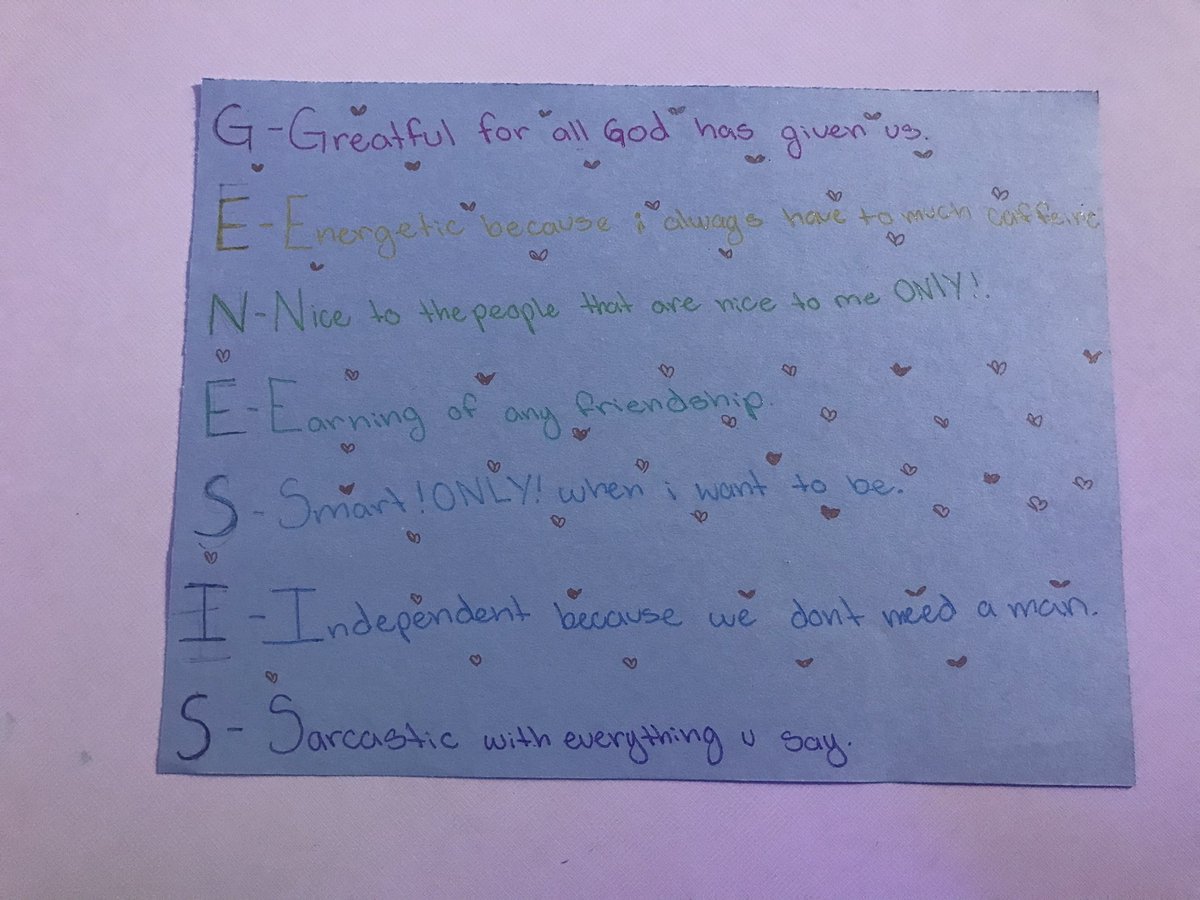 G-Greatful for all God has given us.
E-Energetic because i always have to much caffeine
N-Nice to the people that are nice to me ONlY!.
E-Earning of any friendship.
S-Smart!ONLY! when i want to be.
I-Independent because we dont need a man.
S-Sarcastic with everything u say.